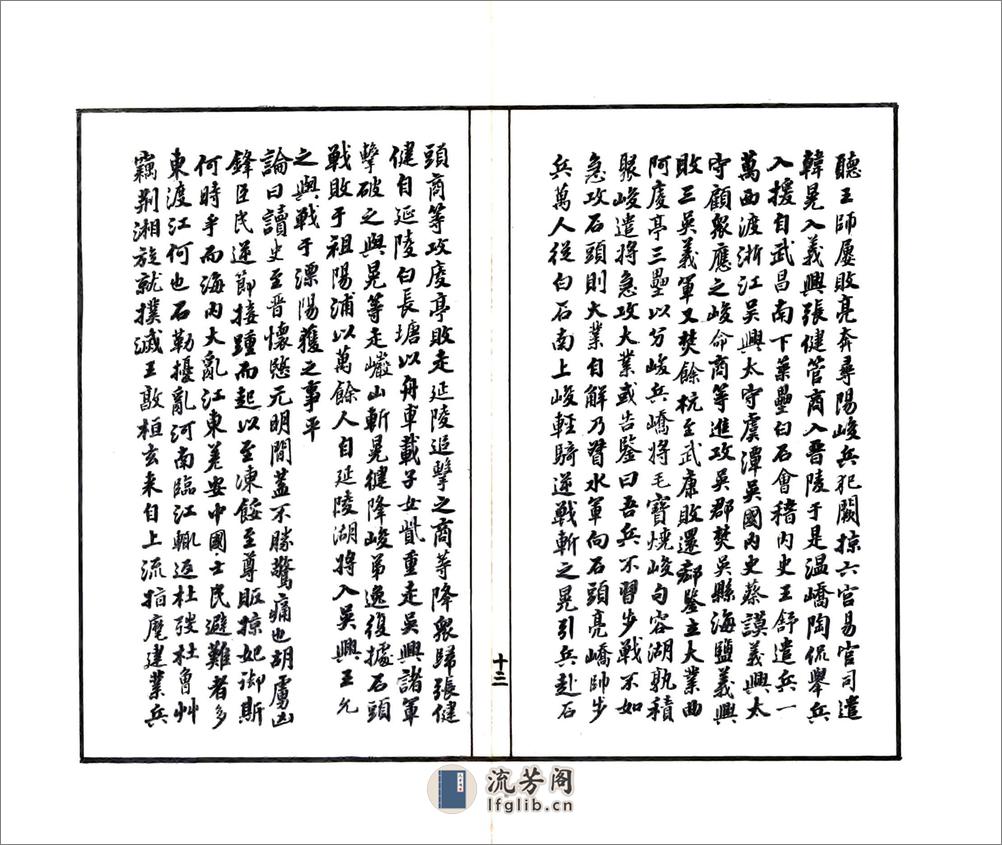 聽王師屢敗亮奔尋陽峻兵犯闕掠六官易官司遣
韓晃入義興張健管商入晉陵于是温嶠陶侃舉兵
入援自武昌南下築壘白石會稽内史王舒遣兵一
萬西渡浙江吳興太守虞潭吳國内史蔡謨義興太
守顧衆應之峻命商等進攻吳郡焚吳縣海鹽義興
敗三吳義軍又焚餘杭至武康敗還郗鑒立大業曲
阿庱亭三壘以分峻兵嶠將毛寶燒峻句容湖孰積
聚峻遣將急攻大業或告鑒曰吾兵不習步戰不如
急攻石頭則大業自解乃督水軍向石頭亮嶠帥步
兵萬人從白石南上峻輕騎逆戰斬之晃引兵赴石
十三
頭商等攻庱亭敗走延陵追擊之商等降衆歸張健
健自延陵向長塘以舟車載子女貲重走吳興諸軍
擊破之與晃等走巖山斬晃健降峻弟逸復據石頭
戰敗于祖陽浦以萬餘人自延陵湖將入吳興王允
之與戰于溧陽獲之事平
論曰讀史至晉懷愍元明間蓋不勝驚痛也胡虜凶
鋒臣民逆節接踵而起以至凍餒至尊販掠妃御斯
何時乎而海内大亂江東差安中國士民避難者多
東渡江何也石勒擾亂河南臨江輒返杜弢杜魯艸
竊荆湘旋就撲滅王敦桓玄来自上流指麾建業兵
流芳阁
lfglib.cn